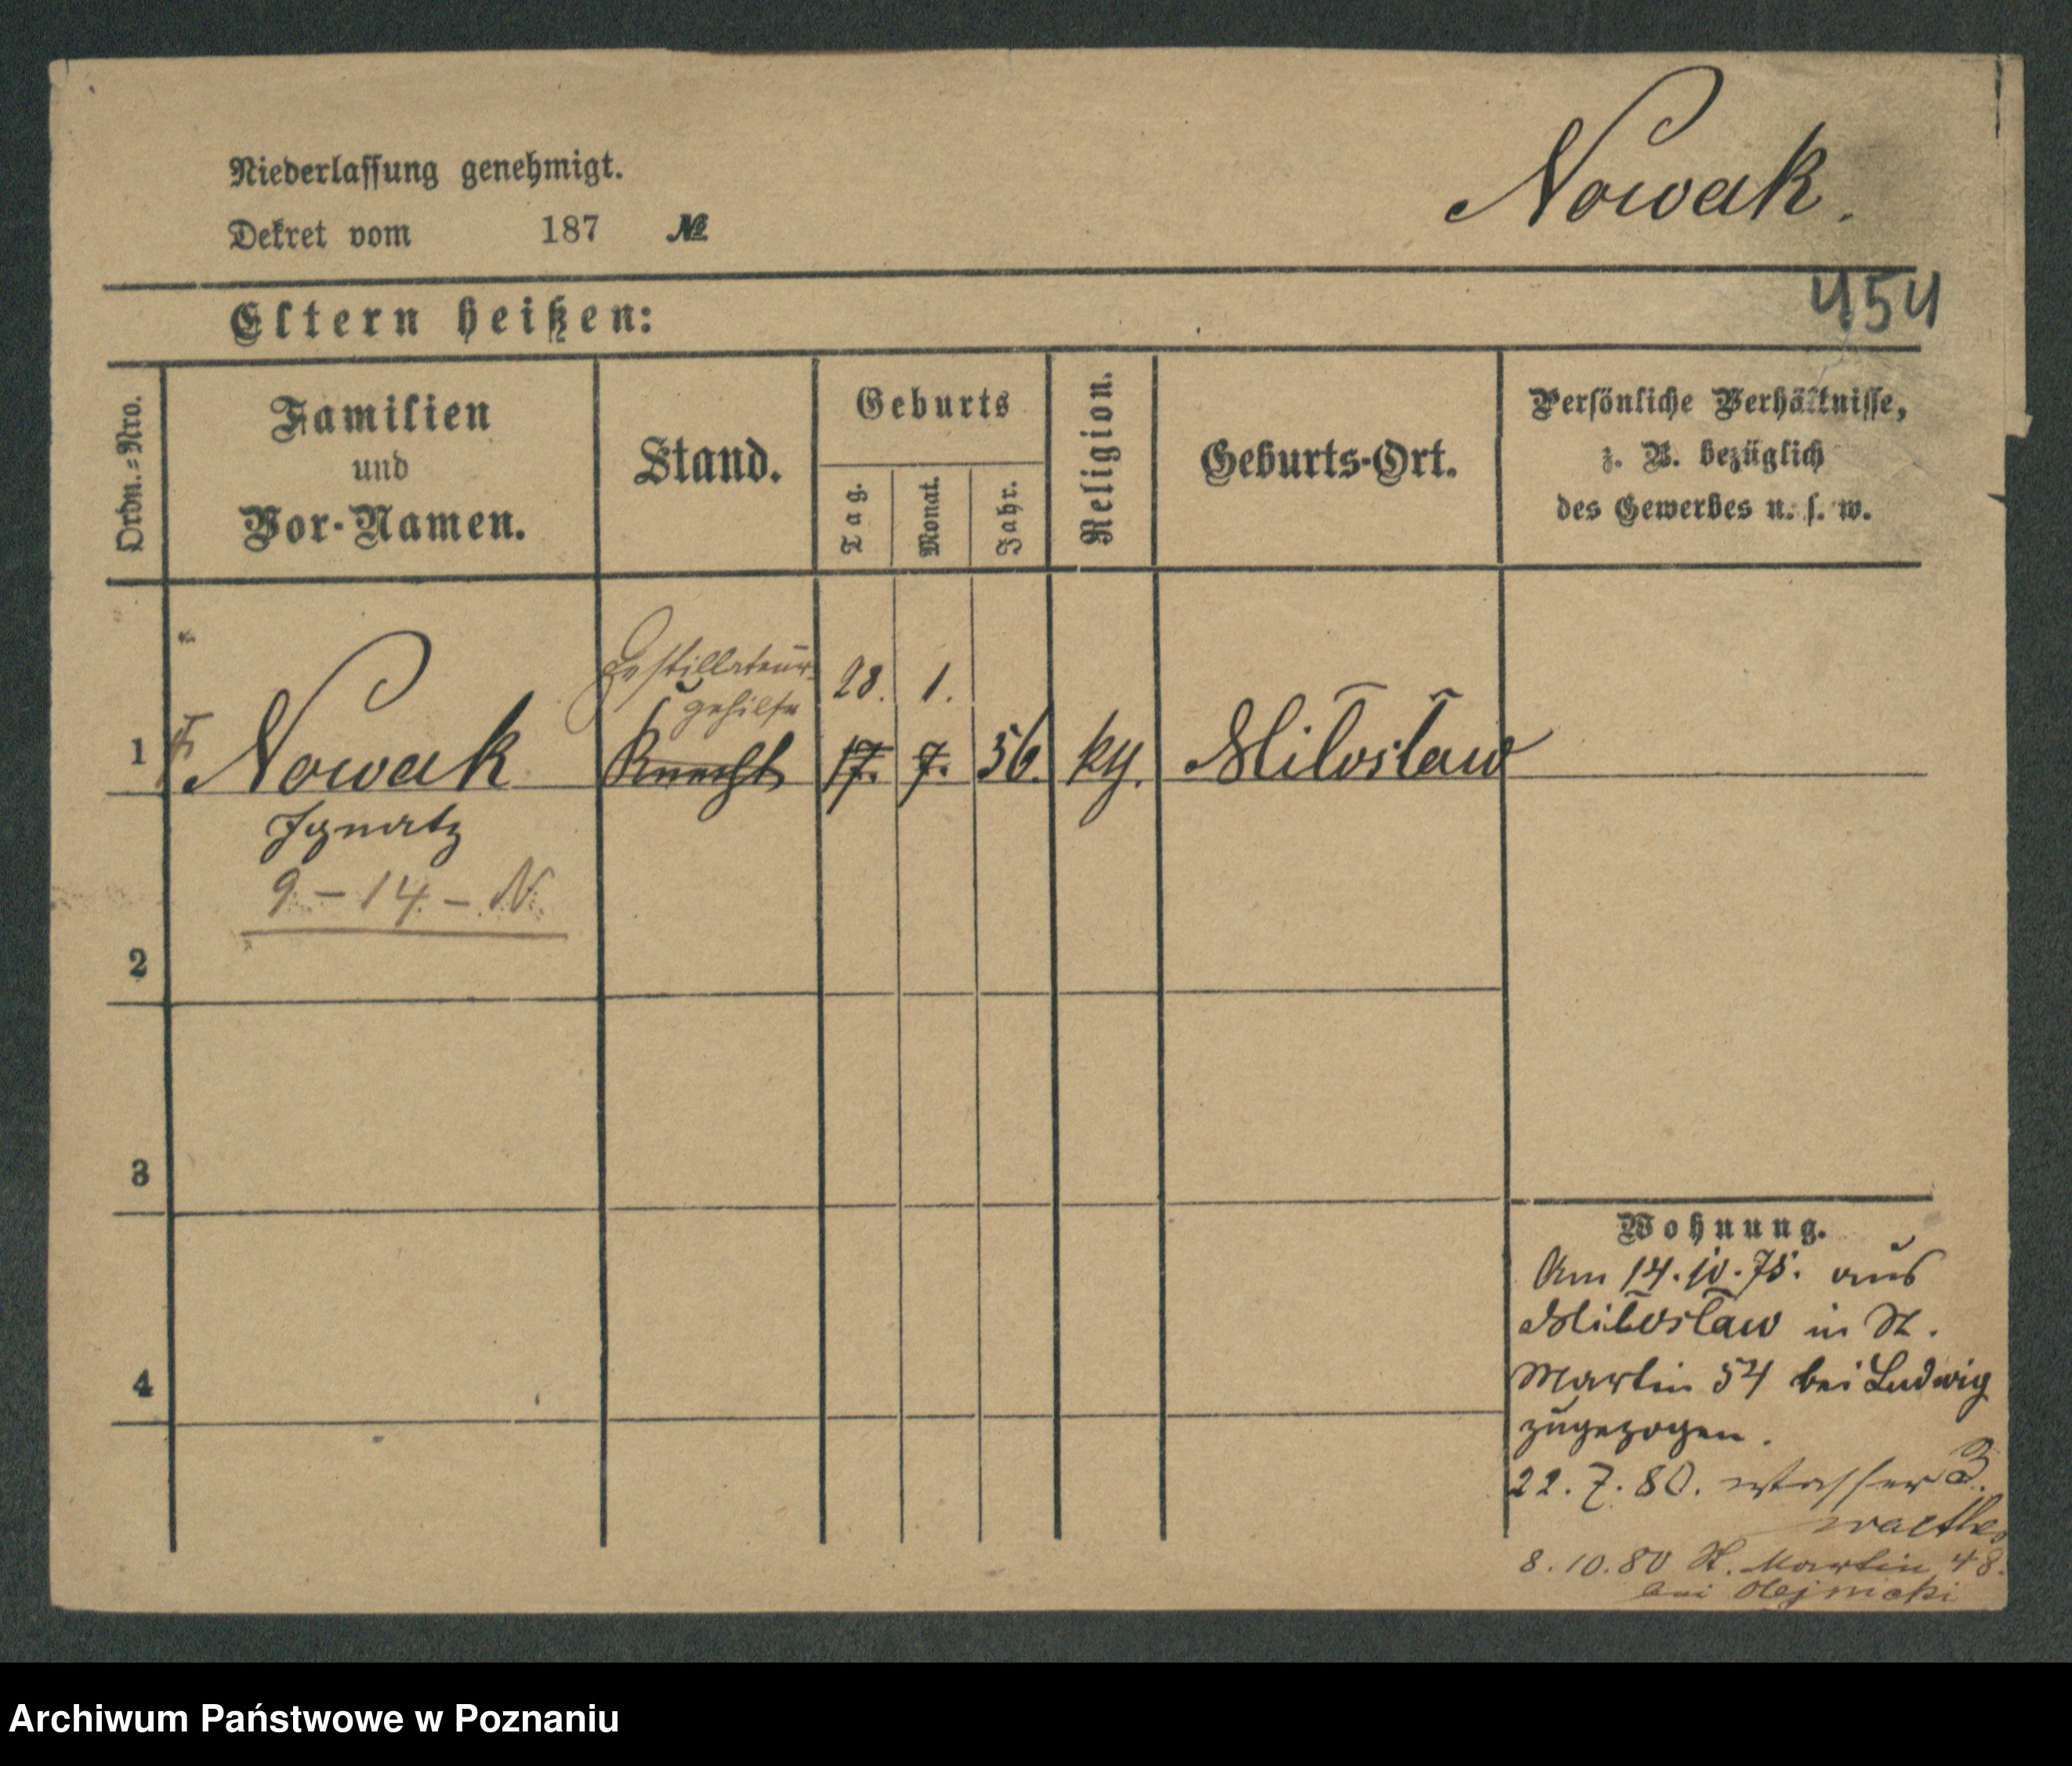 Nowak.
Niederlassung genehmigt.
Dekret vom 187 №
454
Eltern heißen:
Ordn.=Nro.
Familien
und
Vor-Namen.
Stand.
Geburts
Tag.
Monat.
Jahr.
Religion.
Geburts-Ort.
Persönliche Verhältnisse,
z. B. bezüglich
des Gewerbes u. s. w.
Destillateur-
gehilfe
28. 1.
1 Nowak Knecht 17. 7. 56. kth. Miłosław
Ignatz
9 - 14 - N.
2
3
4
Wohnung.
Am 14.10.75. aus
Miłosław in St.
Martin 54 bei Ludwig
zugezogen.
22.7.80. Wasser 3.
8.10.80 St. Martin 48.
bei
Archiwum Państwowe w Poznaniu